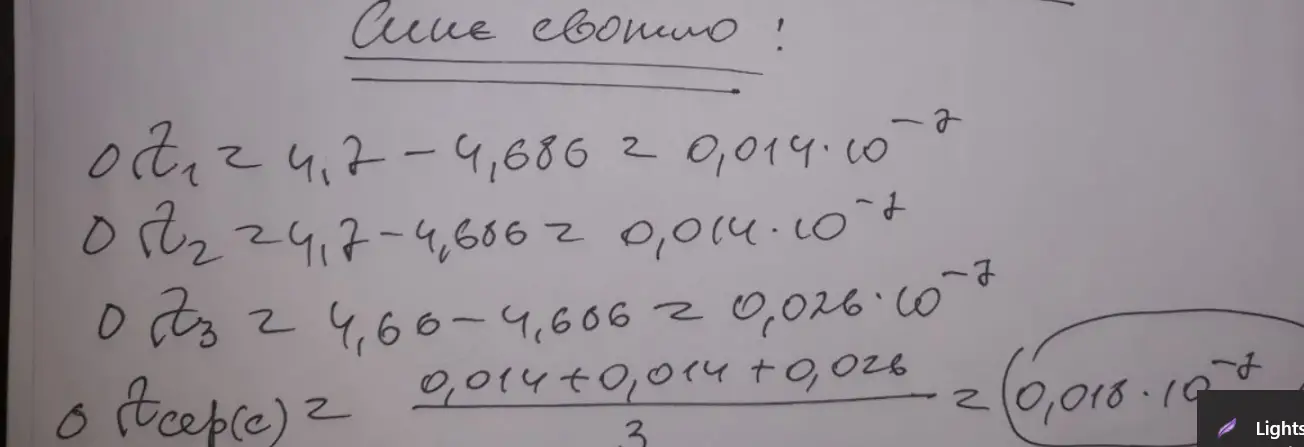 Синє світло!
Δλ₁ = 4,7 – 4,686 = 0,014·10⁻⁷
Δλ₂ = 4,7 – 4,686 = 0,014·10⁻⁷
Δλ₃ = 4,66 – 4,686 = 0,026·10⁻⁷
Δλсер(с) = (0,014 + 0,014 + 0,026) / 3 = 0,018·10⁻⁷
Lights